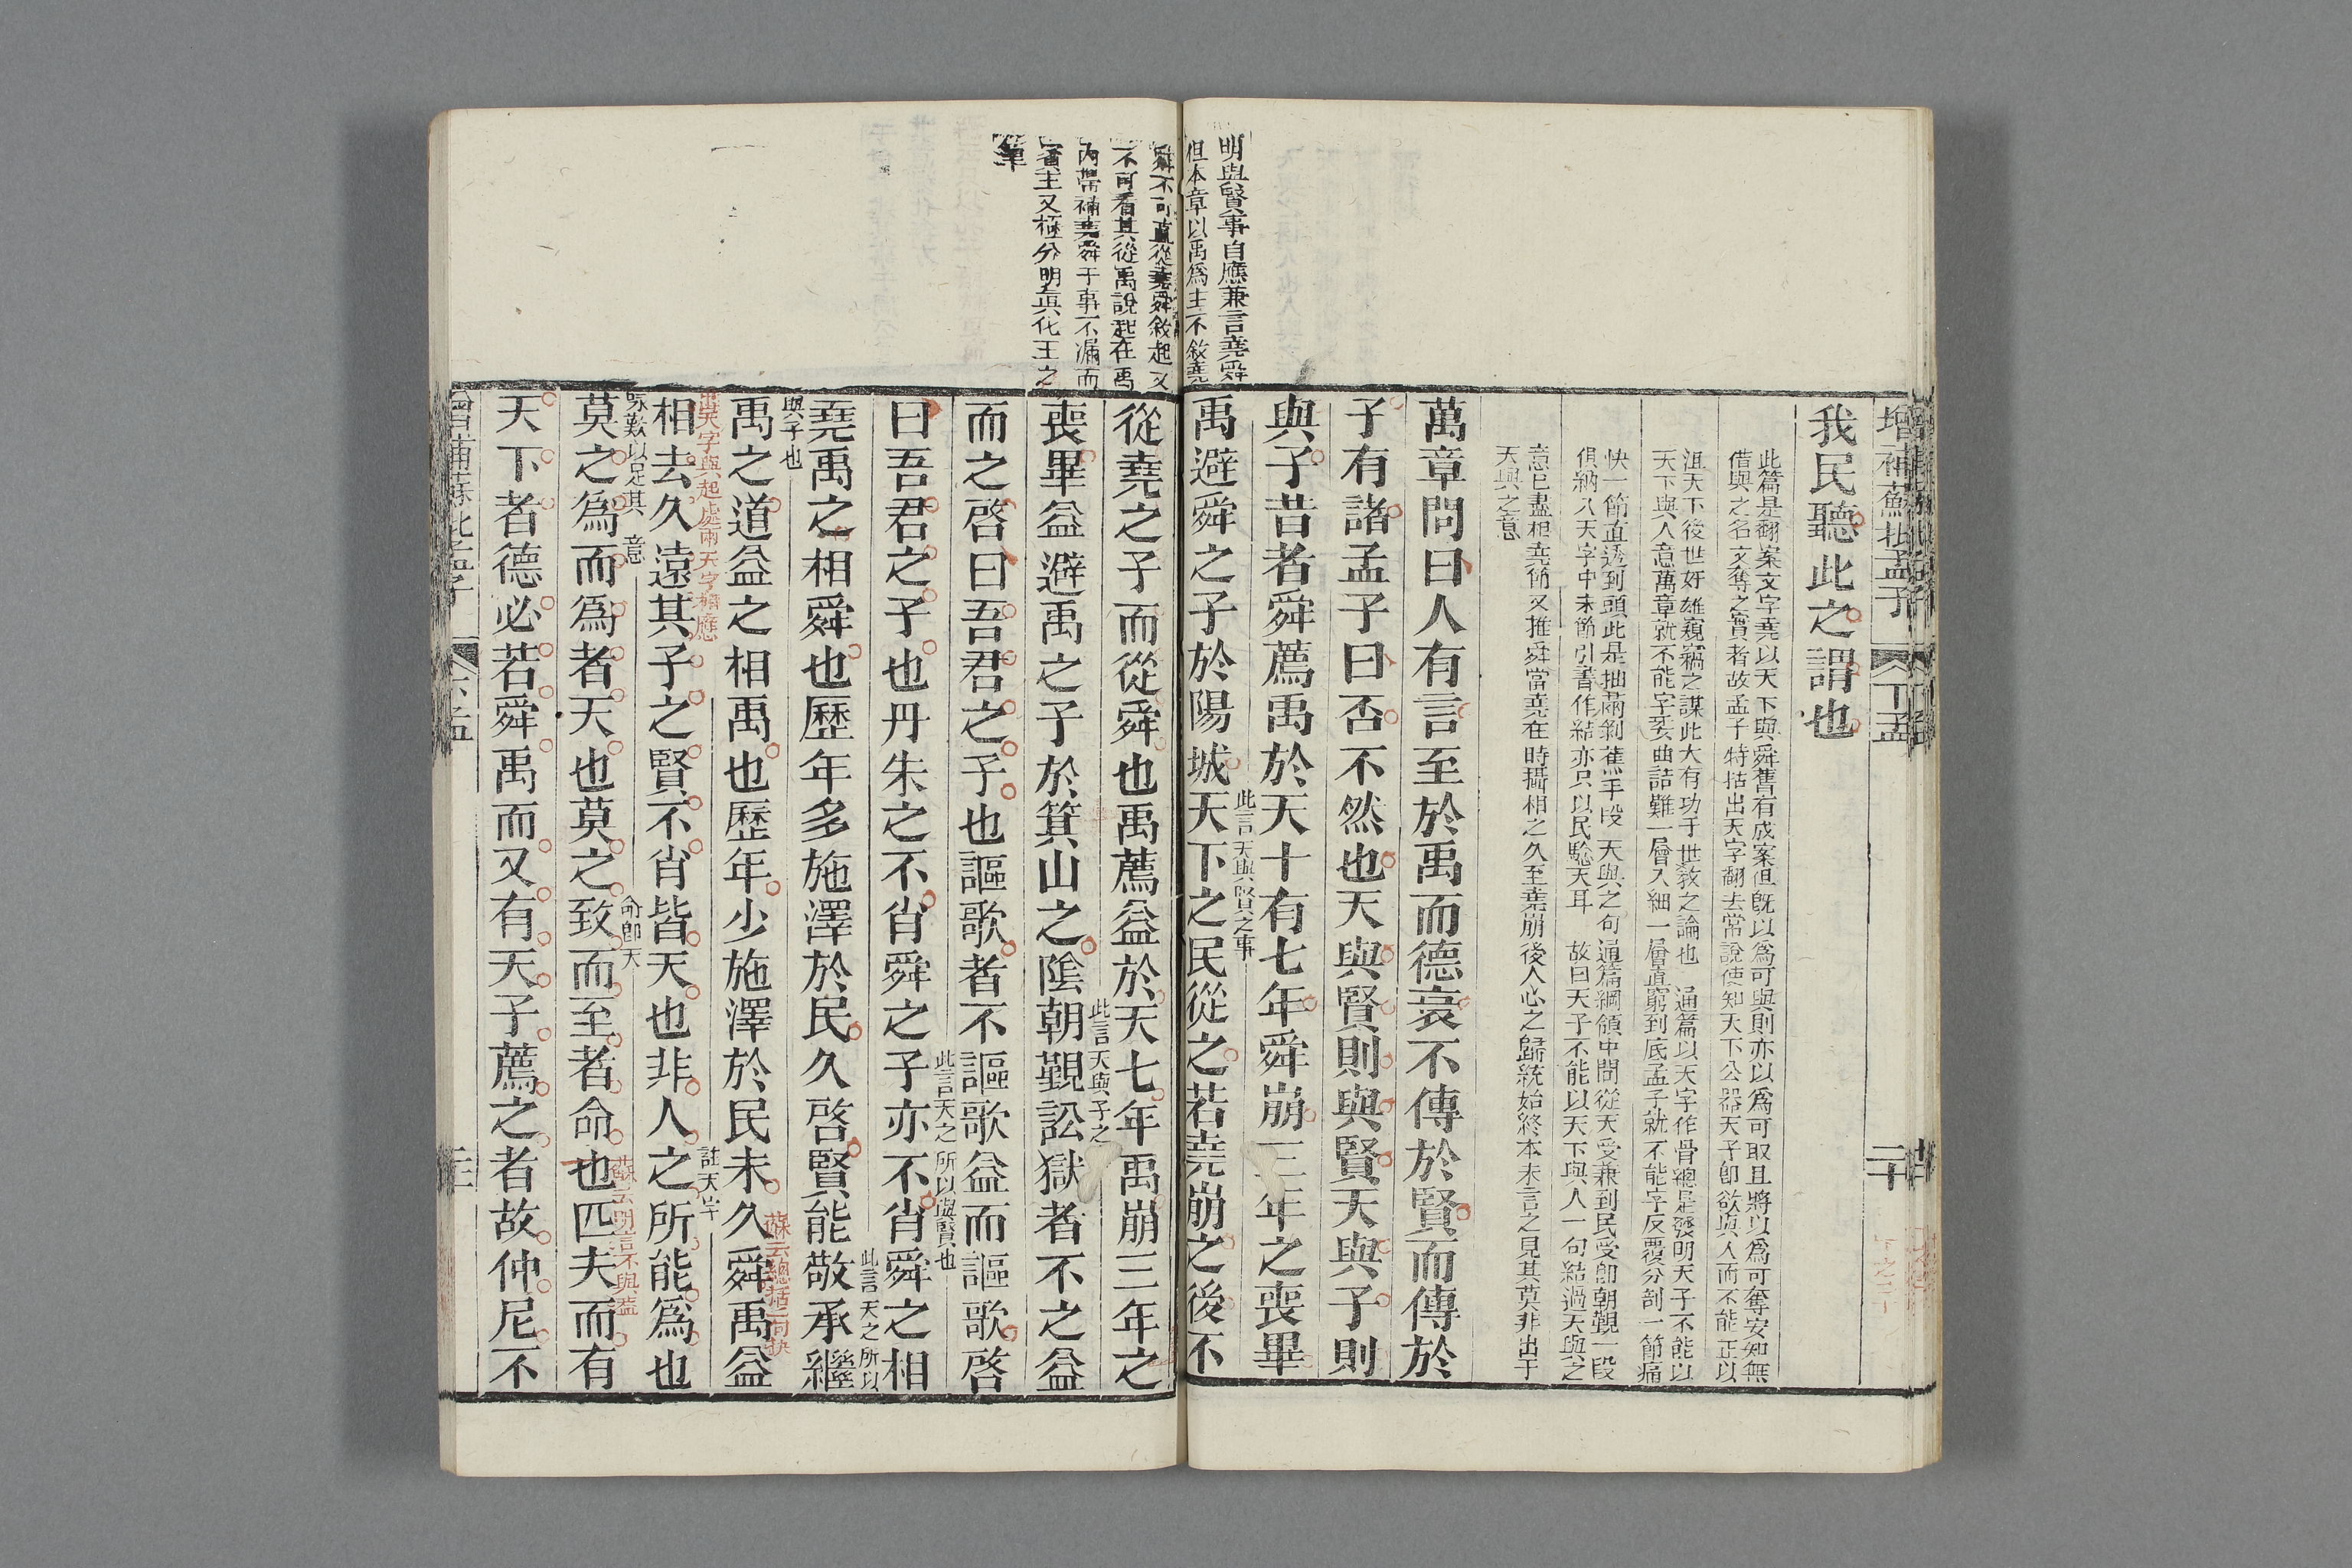 增補蘇批孟子
下孟
二十
我民聽此之謂也
此篇是翻案文字堯以天下與舜舊有成案但既以為可與則亦以為可取且將以為可奪安知無
借與之名文奪之實者故孟子特拈出天字翻去常說使知天下公器天子卽欲與人而不能正以
沮天下後世奸雄窺竊之謀此大有功于世敎之論也 通篇以天字作骨總是發明天子不能以
天下與人意萬章就不能字委曲詰難一層入細一層直窮到底孟子就不能字反覆分剖一節痛
快一節直透到頭此是抽繭剝蕉手段 天與之句通篇綱領中間從天受兼到民受卽朝覲一段
俱納入天字中末節引書作結亦只以民驗天耳 故曰天子不能以天下與人一句結過天與之
意已盡相堯節又推舜當堯在時攝相之久至堯崩後人心之歸統始終本末言之見其莫非出于
天與之意
萬章問曰人有言至於禹而德衰不傳於賢而傳於
子有諸孟子曰否不然也天與賢則與賢天與子則
與子昔者舜薦禹於天十有七年舜崩三年之喪畢
此言天與賢之事
禹避舜之子於陽城天下之民從之若堯崩之後不
明與賢事自應兼言堯舜
但本章以禹為主不敘堯
舜不可直從堯舜敘起又
不可看其從禹說起在禹
內帶補堯舜于事不漏而
賓主又極分明眞化工之
筆
從堯之子而從舜也禹薦益於天七年禹崩三年之
此言天與子之
喪畢益避禹之子於箕山之陰朝覲訟獄者不之益
而之啓曰吾君之子也謳歌者不謳歌益而謳歌啓
此言天之所以與賢也
曰吾君之子也丹朱之不肖舜之子亦不肖舜之相
此言天之所以
堯禹之相舜也歷年多施澤於民久啓賢能敬承繼
與子也
蘇云總括二句抉
禹之道益之相禹也歷年少施澤於民未久舜禹益
出天字與起處兩天字相應
註天字
相去久遠其子之賢不肖皆天也非人之所能為也
咏歎以足其意
命卽天
蘇云明言不與益
莫之為而為者天也莫之致而至者命也匹夫而有
天下者德必若舜禹而又有天子薦之者故仲尼不